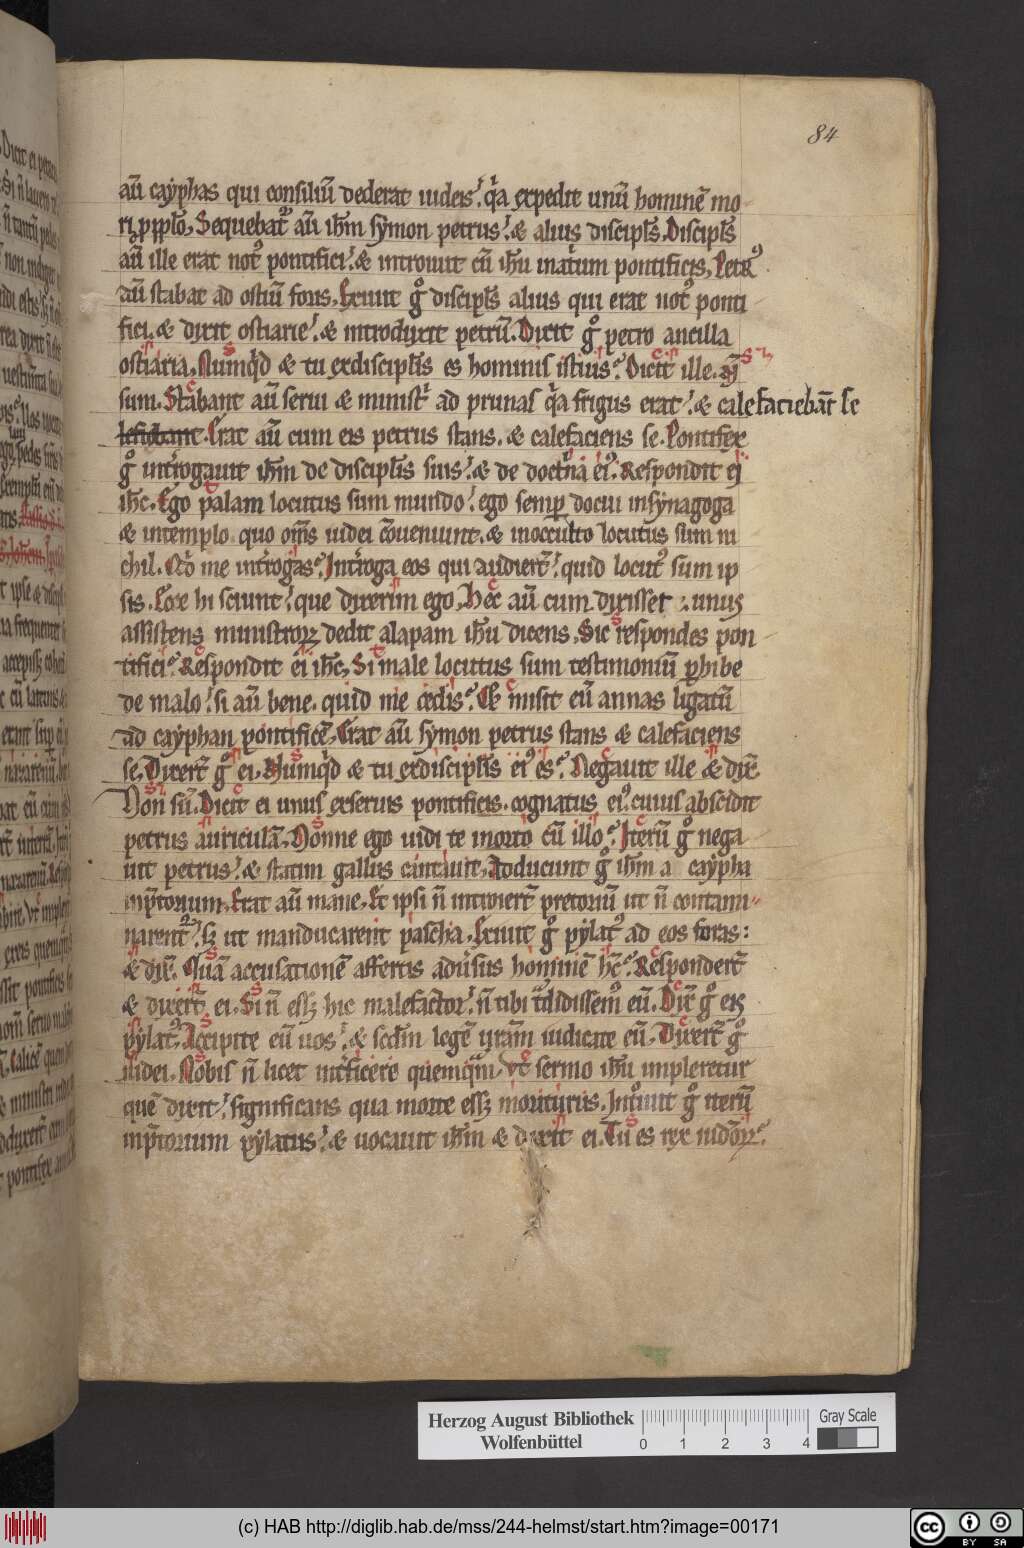 84
aū cayphas qui consiliū dederat iudeis. qͥa expedit unū hominē mo
ri pͦ pplo. Sequebat᷑ aū ihm symon petrus. & alius discipls. Discipls
aū ille erat notꝰ pontifici. & introiuit cū ihu inatͥum pontificis. Petrꝰ
aū stabat ad ostiū foris. Exiuit gͦ discipls alius qui erat notꝰ ponti
fici. & dixit ostiarie. & introduxit petrū. Dixit gͦ petro ancilla
ostiaria. Numqͥd & tu exdiscipls es hominis istius. Dicit ille.
sum. Stabant aū serui & ministͥ ad prunas qͥa frigus erat. & calefaciebant se
Erat aū cum eis petrus stans. & calefaciens se. Pontifex
gͦ int͛rogauit ihm de discipls suis. & de doctͥna eiꝰ. Respondit ei
ihc. Ego palam locutus sum mundo. ego semp docui insynagoga
& intemplo quo oms iudei ꝯueniunt. & inocculto locutus sum ni
chil. Qͥd me int͛rogas. Int͛roga eos qui audiert̄. quid locutꝰ sum ip
sis. Ecce hi sciunt. que dixerim ego. Hec aū cum dixisset. unus
assistens ministroꝝ dedit alapam ihu dicens. Sic respondes pon
tifici. Respondit ei ihc. Si male locutus sum testimoniū phibe
de malo. si aū bene. quid me cedis. Et misit eū annas ligatū
ad cayphan pontificē. Erat aū symon petrus stans & calefaciens
se. Dixert̄ gͦ ei. Numqͥd & tu exdiscipls eiꝰ es. Negauit ille & dix̄.
Non sū. Dicit ei unus exseruis pontificis. cognatus eiꝰ. cuius abscidit
petrus auriculā. Nonne ego uidi te inorto cū illo. Iterū gͦ nega
uit petrus. & statim gallus cantauit. Adducunt gͦ ihm a caypha
inp̄torium. Erat aū mane. Et ipsi n̄ introiert̄ pretoriū ut n̄ contami
narent᷑. sꝫ ut manducarent pascha. Exiuit gͦ pylatꝰ ad eos foras.
& dix̄. Quā accusationē affertis adūsus hominē hc̄. Respondert̄
& dixert̄ ei. Si n̄ essꝫ hic malefactor. n̄ tibi tͣdidissemꝰ eū. Dix̄ gͦ eis
pylatꝰ. Accipite eū uos. & scdm legē uram iudicate eū. Dixert̄ gͦ
iudei. Nobis n̄ licet int͛ficere quemqͣm. Ut sermo ihu impleretur
quē dixit. significans qua morte essꝫ moriturus. Intͦiuit gͦ iterū
inp̄torium pylatus. & uocauit ihm & dixit ei. Tu es rex iudeoꝝ.
Herzog August Bibliothek
Wolfenbüttel
0 1 2 3 4
Gray Scale
(c) HAB http://diglib.hab.de/mss/244-helmst/start.htm?image=00171
cc BY SA